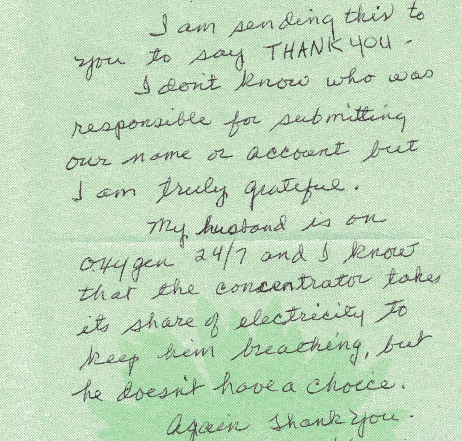 I am sending this to
you to say THANK YOU -
I don't know who was
responsible for submitting
our name or account but
I am truly grateful.
My husband is on
oxygen 24/7 and I know
that the concentrator takes
its share of electricity to
keep him breathing, but
he doesn't have a choice.
Again Thank You.